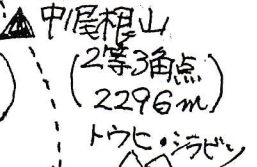 中ノ尾根山
(2等3角点
2296m)
トウヒ・シラビソ